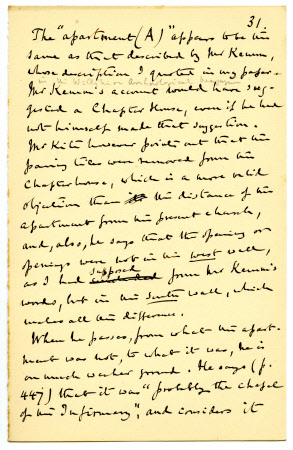 31.
The "apartment (A)" appears to be the
same as that described by Mr Kemm,
whose description I quoted in my paper.
in the Wiltshire Archaeological Magazine
Mr Kemm's account would have sug-
gested a Chapter House, even if he had
not himself made that suggestion.
Mr Kite however points out that the
paving tiles were removed from the
Chapterhouse, which is a more valid
objection than the distance of the
apartment from the present church,
and, also, he says that the opening or
openings were not in the west wall,
as I had supposed from Mr Kemm's
words, but in the south wall, which
makes all the difference.
When he passes, from what the apart-
ment was not, to what it was, he is
on much weaker ground. He says (p.
447) that it was "probably the chapel
of the Infirmary", and considers it